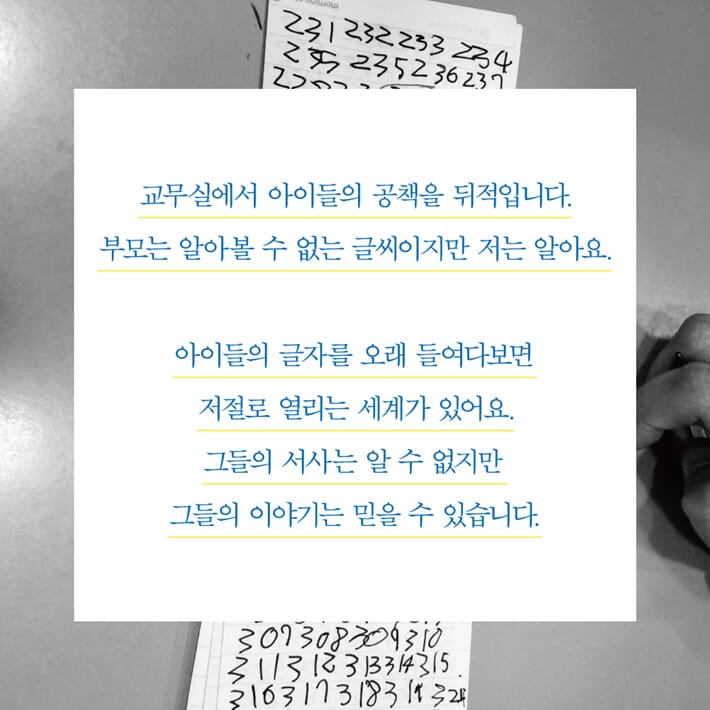 231 232 233 234
235 235 236 237
교무실에서 아이들의 공책을 뒤적입니다.
부모는 알아볼 수 없는 글씨이지만 저는 알아요.
아이들의 글자를 오래 들여다보면
저절로 열리는 세계가 있어요.
그들의 서사는 알 수 없지만
그들의 이야기는 믿을 수 있습니다.
307 308 309 310
311 312 313 314 315.
316 317 318 319